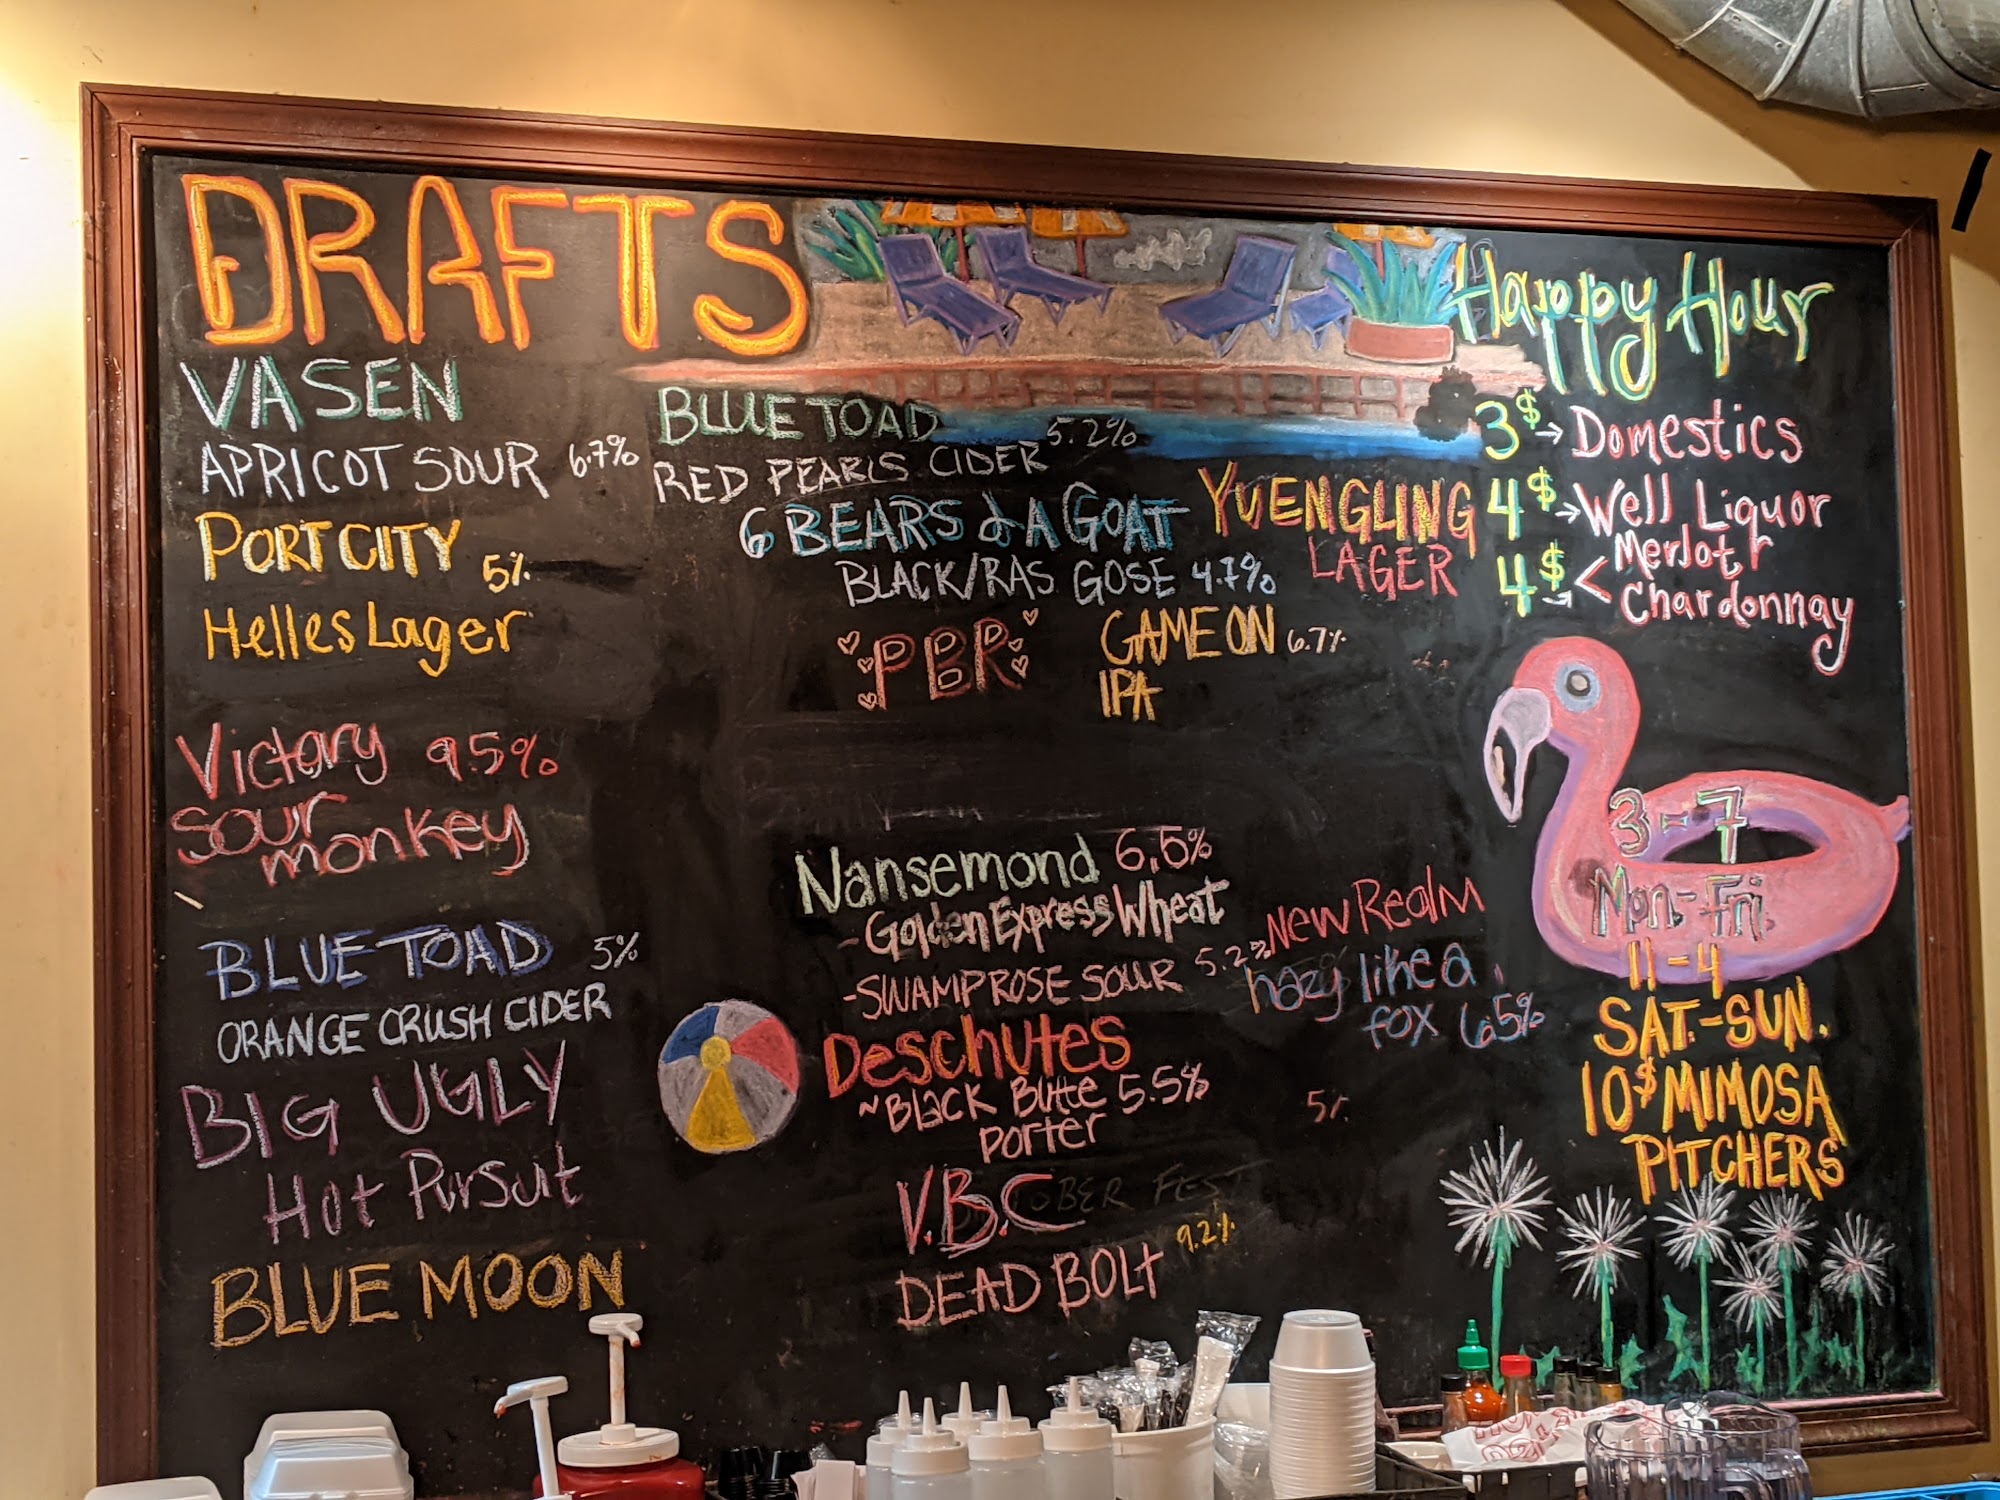 DRAFTS
VASEN
APRICOT SOUR 6.7%
PORT CITY 5%
Helles Lager
Victory 9.5%
Sour
monkey
BLUE TOAD 5%
ORANGE CRUSH CIDER
BIG UGLY
Hot Pursuit
BLUE MOON
BLUE TOAD 5.2%
RED PEARLS CIDER
6 BEARS & A GOAT
BLACK/RAS GOSE 4.7%
YUENGLING
LAGER
PBR
GAME ON 6.7%
IPA
Nansemond 6.5%
- Golden Express Wheat
- SWAMP ROSE SOUR 5.2%
New Realm
hazy like a
fox 6.5%
Deschutes
~ Black Butte 5.5%
Porter
5%
V.B.C
OBER FEST
DEAD BOLT 9.2%
Happy Hour
3$ → Domestics
4$ → Well Liquor
4$ → < Merlot r
Chardonnay
3-7
Mon.-Fri.
11-4
SAT.-SUN.
10$ MIMOSA
PITCHERS